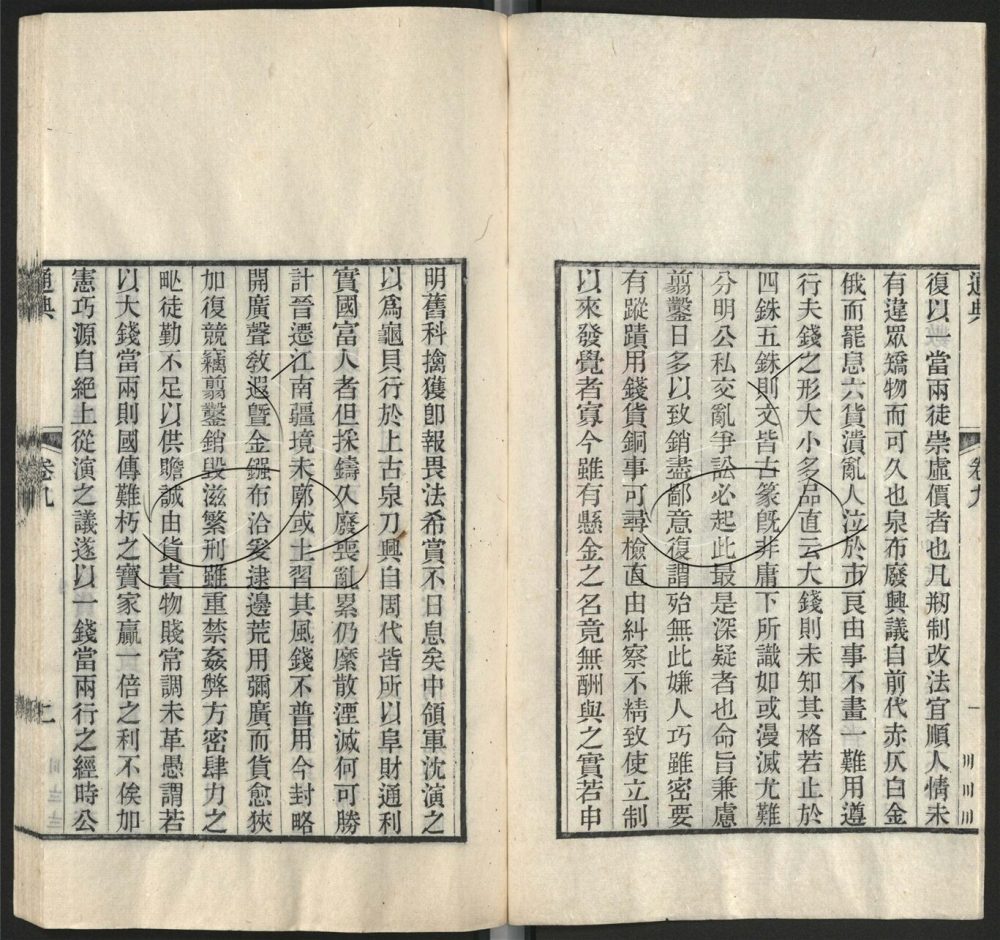 通典
卷九
一
川川川
復以 當兩徒崇虛價者也凡剏制改法宜順人情未
有違眾矯物而可久也泉布廢興議自前代赤仄白金
俄而罷息六貨潰亂人泣於市良由事不畫一難用遵
行夫錢之形大小多品直云大錢則未知其格若止於
四銖五銖則文皆古篆旣非庸下所識如或漫滅尤難
分明公私交亂爭訟必起此最是深疑者也命旨兼慮
翦鑿日多以致銷盡鄙意復謂殆無此嫌人巧雖密要
有蹤蹟用錢貨銅事可尋檢直由糾察不精致使立制
以來發覺者寡今雖有懸金之名竟無酬與之實若申
明舊科擒獲卽報畏法希賞不日息矣中領軍沈演之
以爲龜貝行於上古泉刀興自周代皆所以阜財通利
實國富人者但採鑄久廢喪亂累仍縻散湮滅何可勝
計晉遷江南疆境未廓或土習其風錢不普用今封略
開廣聲教遐曁金鏹布洽爰逮邊荒用彌廣而貨愈狹
加復競竊翦鑿銷毀滋繁刑雖重禁姦弊方密肆力之
甿徒勤不足以供贍誠由貨貴物賤常調未革愚謂若
以大錢當兩則國傳難朽之寶家贏一倍之利不俟加
憲巧源自絕上從演之議遂以一錢當兩行之經時公
通典
卷九
二